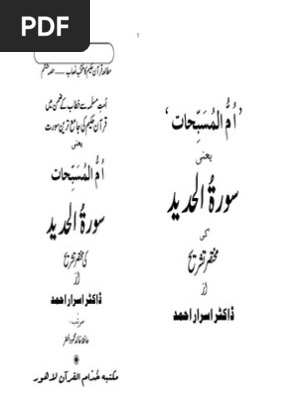 PDF
۱
’اُمُّ الْمُسَبِّحات‘
یعنی
سورۃُ الحدید
کی
مختصر تشریح
از
ڈاکٹر اسرار احمد
مطالعہ قرآن حکیم کا منتخب نصاب ـــ حصہ ششم
اُمتِ مسلمہ سے خطاب کے ضمن میں
قرآن حکیم کی جامع ترین سورت
یعنی
اُمُّ الْمُسَبِّحات
سورۃُ الحدید
کی مختصر تشریح
از
ڈاکٹر اسرار احمد
مرتب:
مکتبہ خدام القرآن لاہور